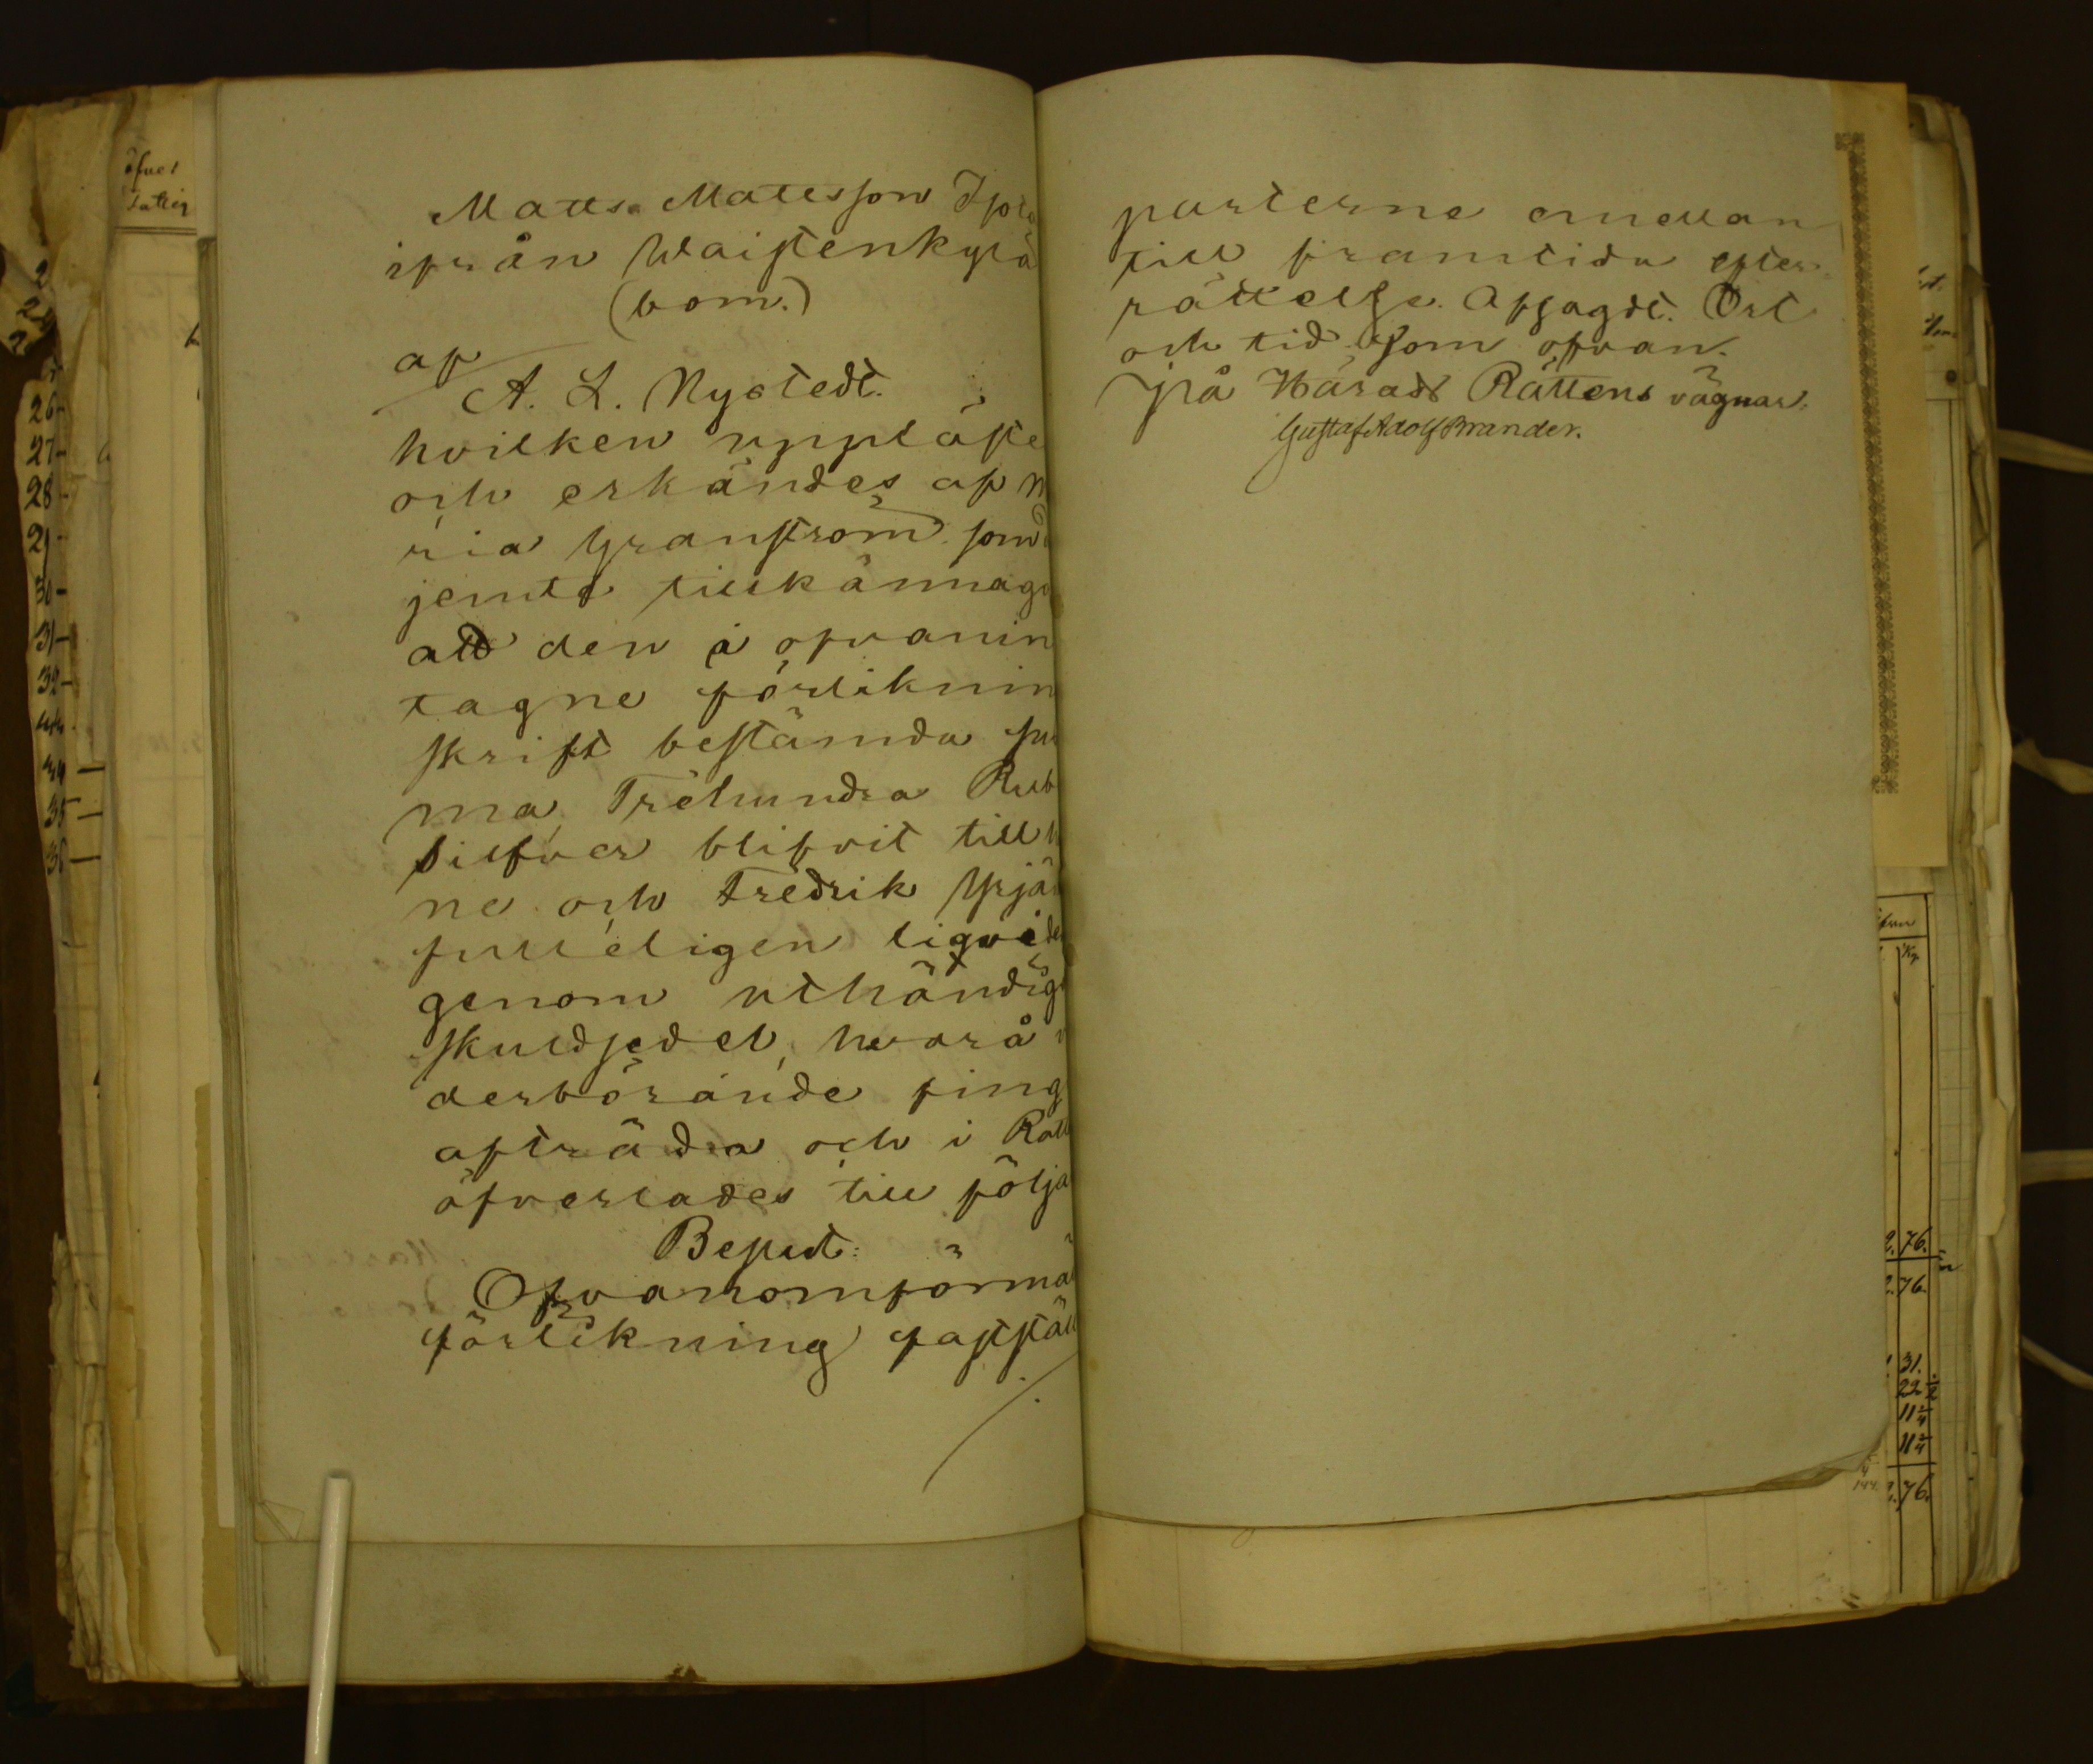 Matts Mattsson Isota
ifrån Waistenkylä
(bom.)
af
A. L. Nystedt.
hvilken uppläste
och erkändes af M
ria Granström som d
jemte tillkännaga
att den i ofvanin
tagne förliknin
skrift bestämda su
ma, Tréhundra Rub
silfver blifvit till h
ne och Fredrik Yrjä
fulleligen liqvide
genom uthändig
skuldsedel, hvarå
derbörande fing
afträda och i Rätt
öfverlades till följa
Beslut:
Ofvanomförmä
förlikning faststäl
parterne emellan
till framtida efter-
rättelse. Afsagdt. Ort
och tid som ofvan.
På Härads Rättens vägnar.
Gustaf Adolf Brander.
öfver
26-
27-
28-
29-
30-
31-
32-
34
35
36
76.
76.
31.
22 1/2
11 1/4
11 1/4
76.